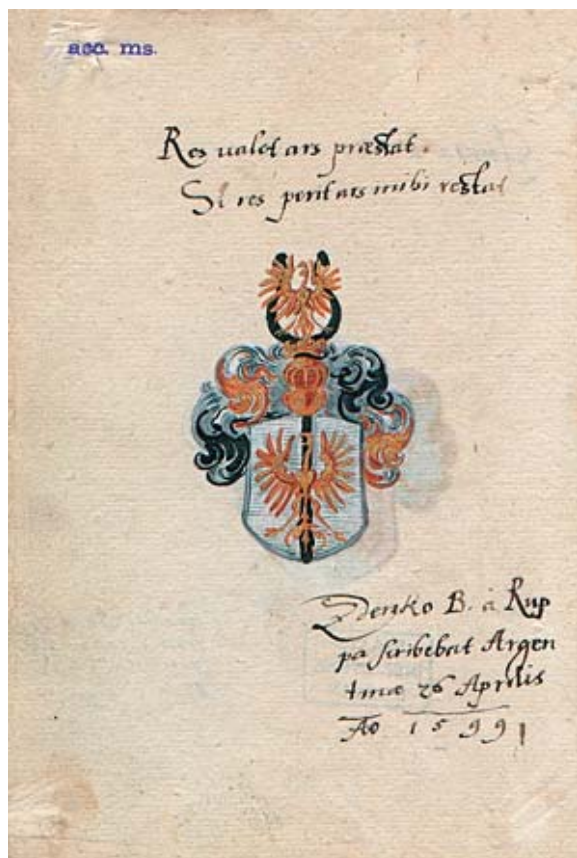 acc. ms.
Res valet ars præstat.
Si res perit ars mihi restat
Zdenko B. à Rup
pa scribebat Argen
tinæ 26 Aprilis
Ao 1599